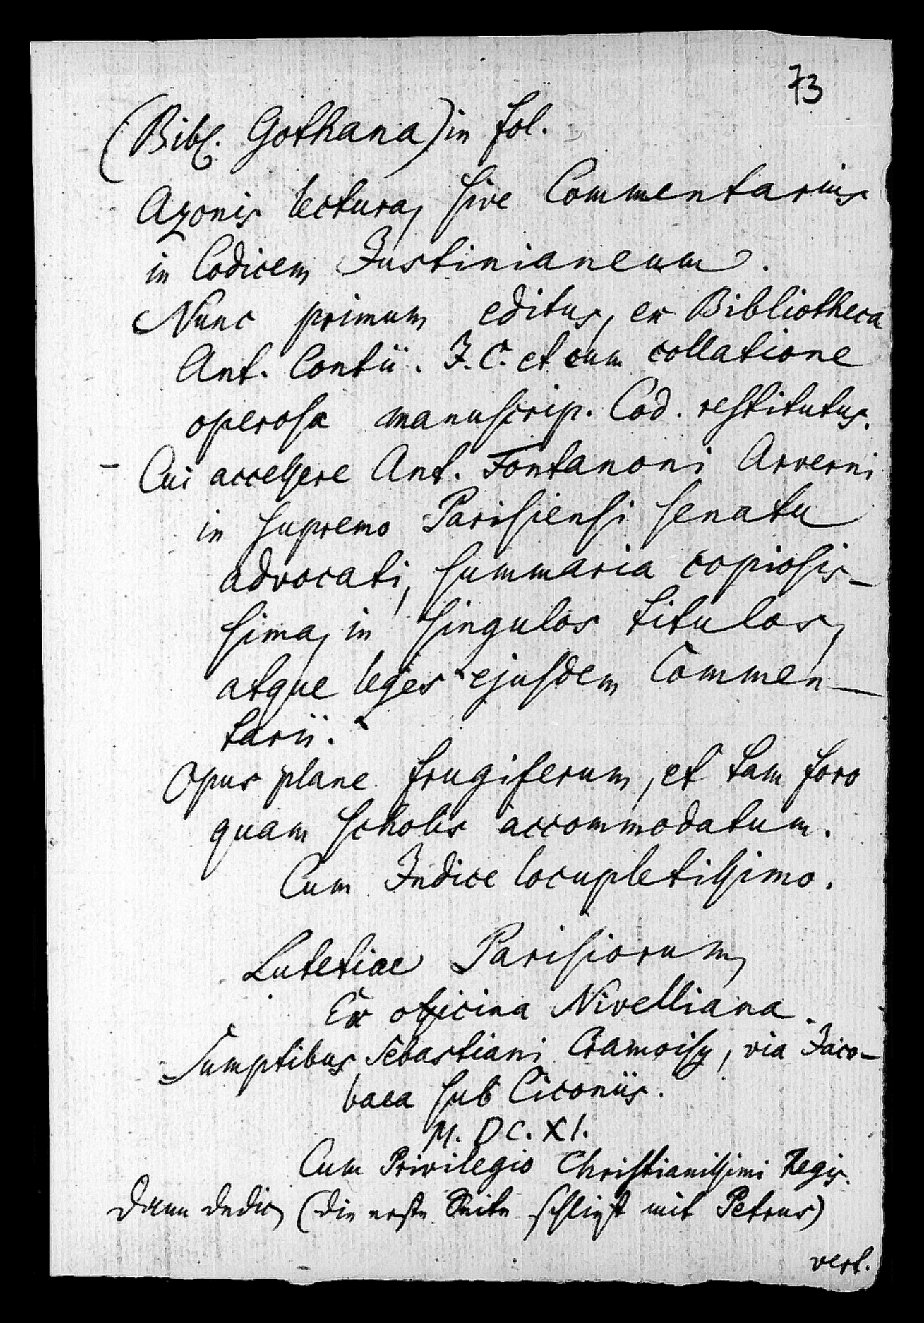 73
(Bibl. Gothana) in fol.
Azonis lectura, sive Commentarius
in Codicem Justinianeum.
Nunc primum editus, ex Bibliotheca
Ant. Contii. J.C. et cum collatione
operosa manuscrip. Cod. restitutus.
- Cui accessere Ant. Fontanoni Arverni
in supremo Parisiensi senatu
advocati, summaria copiosis-
sima, in singulos titulos,
atque leges ejusdem Commen-
tarii.
Opus plane frugiferum, et tam foro
quam scholis accommodatum.
Cum Indice locupletissimo.
Lutetiae Parisiorum,
Ex officina Nivelliana.
Sumptibus Sebastiani Cramoisy, via Jaco-
baea sub Ciconiis.
M.DC.XI.
Cum Privilegio Christianissimi Regis.
Dann Dedic (die erste Seite schließt mit Petrus)
vert.